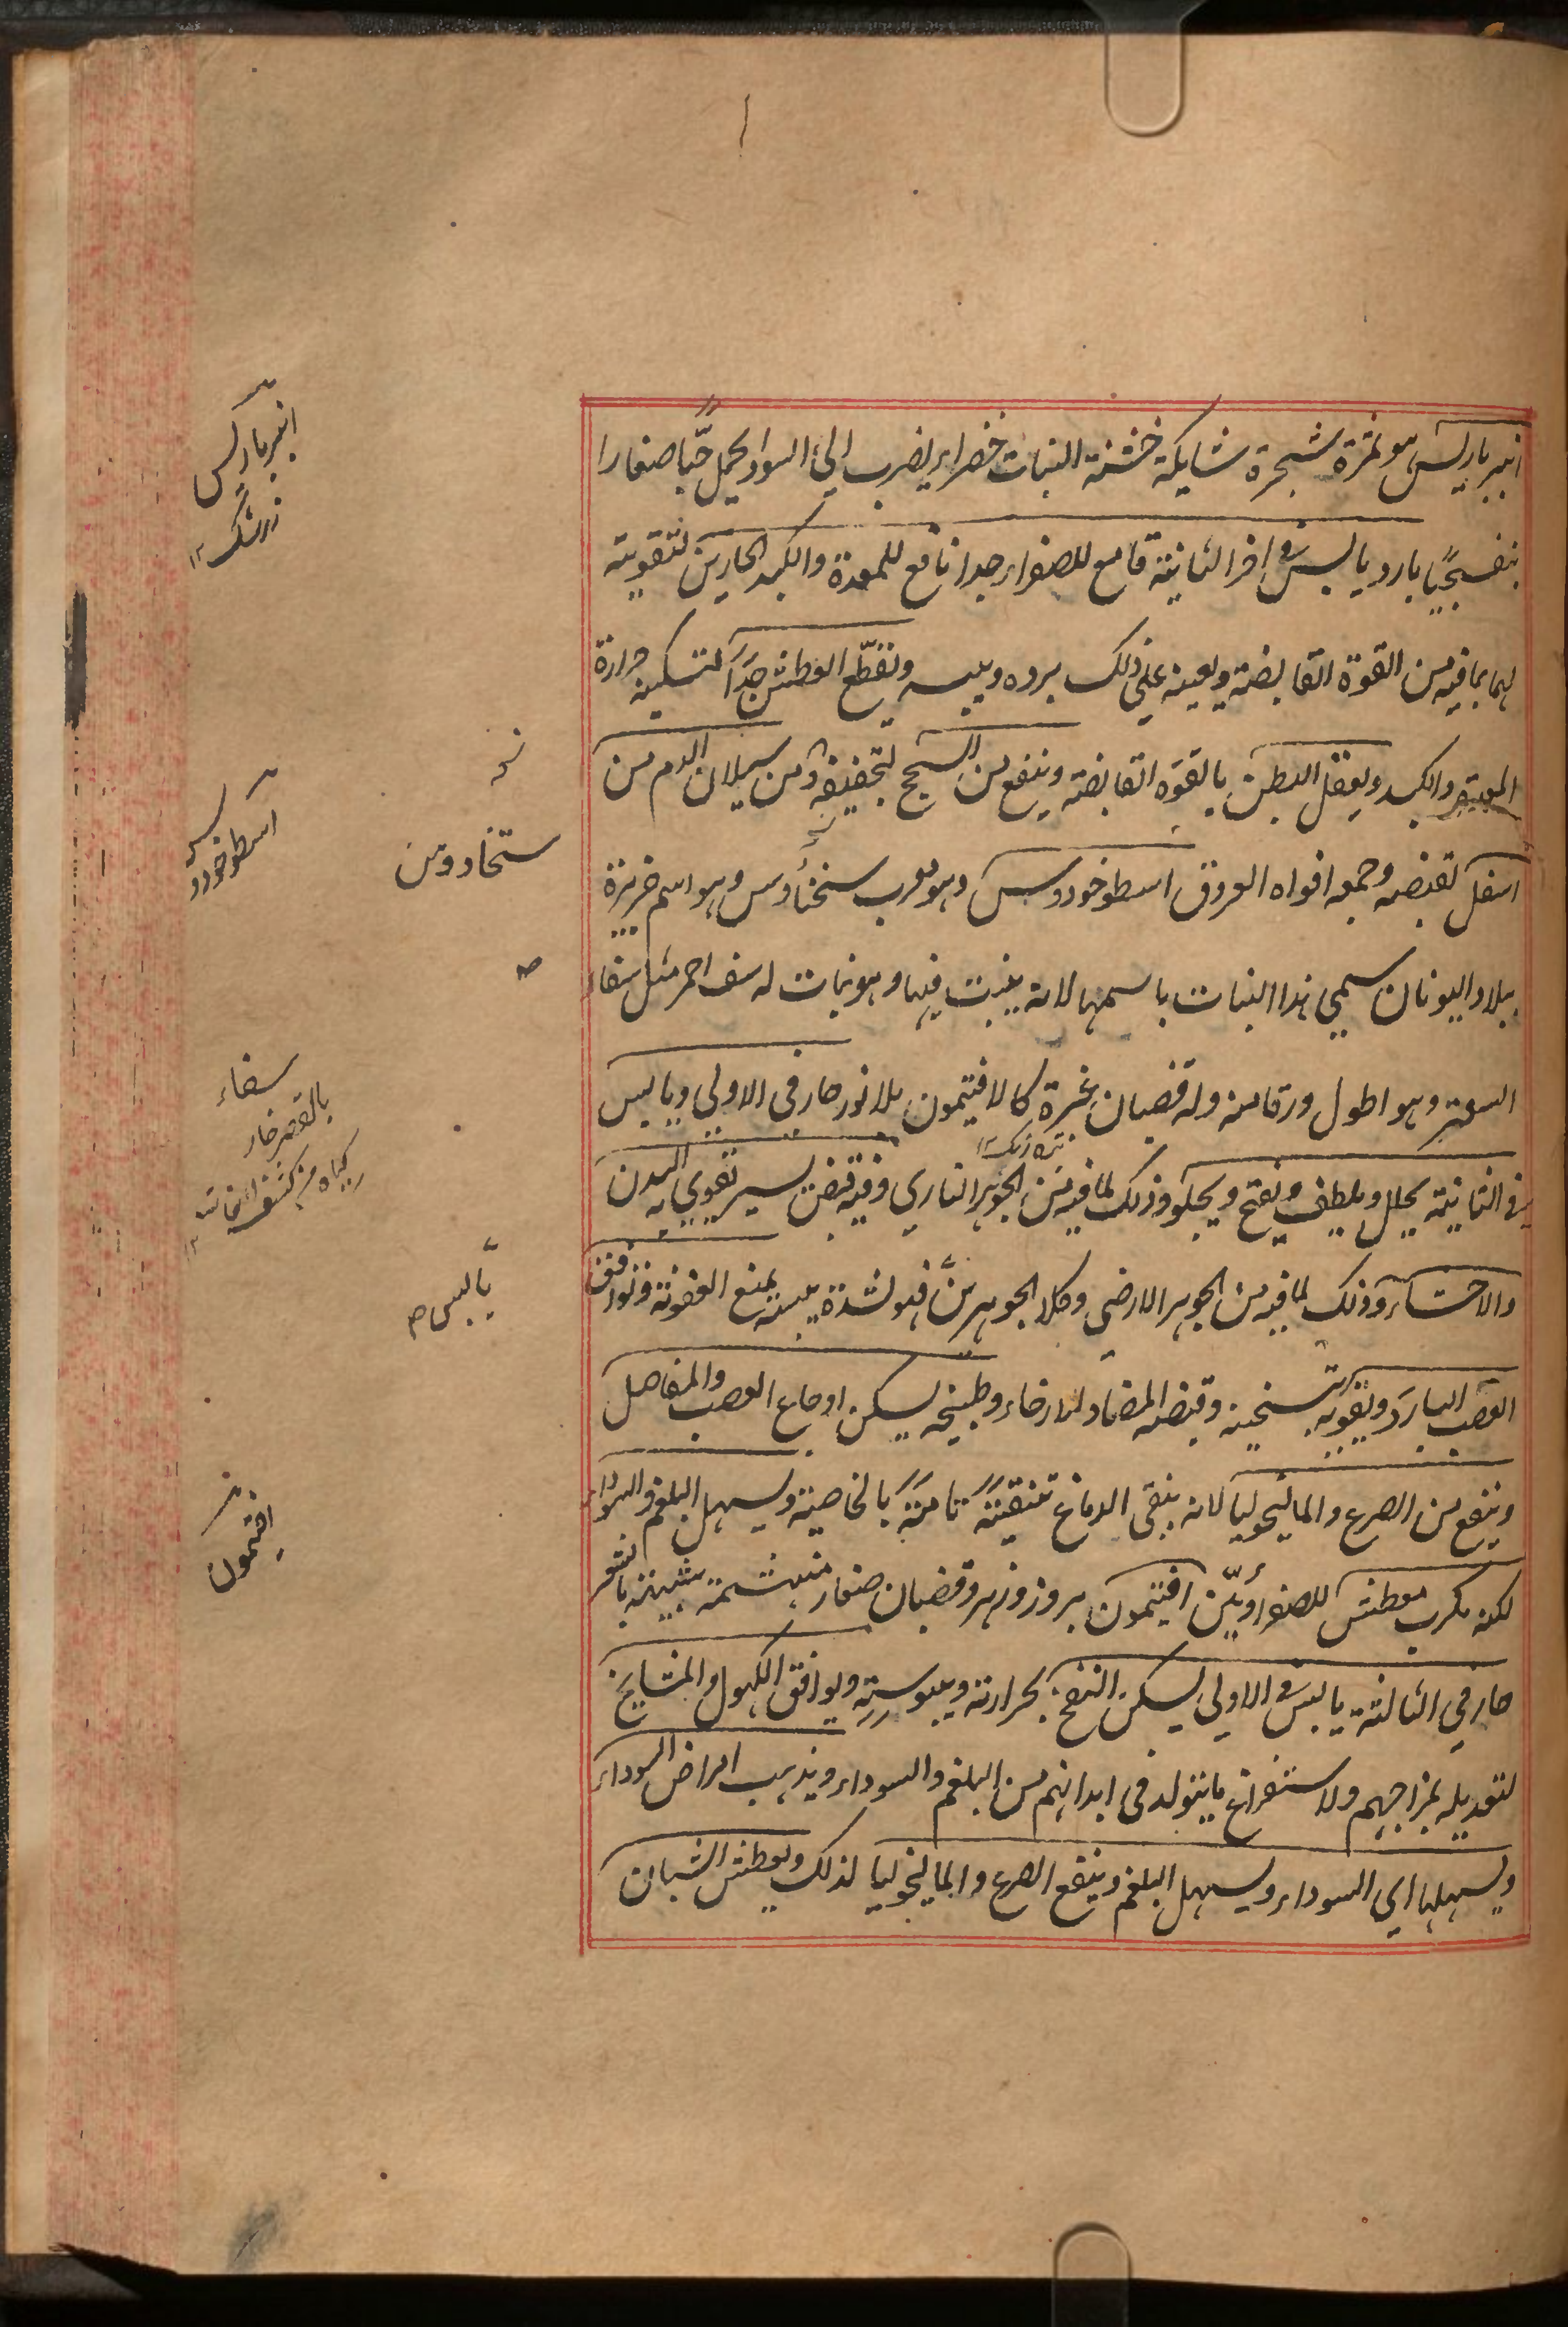 انبرباريس هو ثمرة شجرة شايكة خشنة النبات خضراء يضرب الى السواد يحمل حبّا صغارا
بنفسجيّا بارد يابس فى اخر الثانية قامع للصفراء جدا نافع للمعدة والكبد الحارين لتقويته
لهما بما فيه من القوة القابضة ويعينه على ذلك برده ويبسه ويقطّع العطش جدّا لتسكينه حرارة
المعدة والكبد ويعقل البطن بالقوه القابضة وينفع من السحج لتجفيفه ومن سيلان الدم من
اسفل لقبضه وجمعه افواه العروق اسطوخودوس وهو معرب ستخادوس وهو اسم جزيرة
ببلاد اليونان سمي هذا النبات باسمها لانه ينبت فيها وهو نبات له سف احمر مثل سفا
السعتر وهو اطول ورقا منه وله قضبان غبرة كالافتيمون بلا نور حار فى الاولى ويابس
فى الثانية يحلل ويلطف ويفتح ويجلو وذلك لما فيه من الجوهر الناري وفيه قبض يسير يقوي به البدن
والاحشاء وذلك لما فيه من الجوهر الارضى وكلا الجوهرين فهو لشدة يبسه يمنع العفونة ويوافق
العصب البارد ويقويه بتسخينه وقبضه المضاد للارخاء وطبيخه يسكن اوجاع العصب والمفاصل
وينفع من الصرع والماليخوليا لانه ينقى الدماغ تنقيةً تامةً بالخاصية ويسهل البلغم والسوداء
لكنه يكرب معطش للصفراويّين افتيمون بروز وزهر وقضبان صغار متهشمة شبيهة بالشعر
حار فى الثالثة يابس فى الاولى يسكن النفخ بحرارته ويبوسته ويوافق الكهول والمشايخ
لتعديله بمزاجهم ولاستفراغ ما يتولد فى ابدانهم من البلغم والسوداء ويذهب امراض السوداء
ويسهلها اى السوداء ويسهل البلغم وينفع الصرع والماليخوليا لذلك ويعطش الشبان
انبرباريس
زرشك ١٢
ستخادوس
اسطوخودو
سفاء
بالقصر خار
گياه
يابس ص
افتيمون